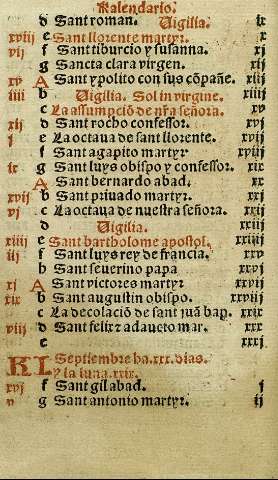 Kalendario.
d Sant roman. Uigilia. ix
xviij e Sant llorente martyr. x
vij f Sant tiburcio y susanna. xj
g Sancta clara virgen. xij
xv A Sant ypolito con sus cōpañe. xiij
iiij b Uigilia. Sol in virgine. xiiij
c La assumpciō de nr̄a señora. xv
xij d Sant rocho confessor. xvj
j e La octaua de sant llorente. xvij
f Sant agapito martyr xviij
ix g Sant luys obispo y confessor. xix
A Sant bernardo abad. xx
xvij b Sant priuado martyr. xxj
vj c La octaua de nuestra señora. xxij
d Uigilia. xxiij
xiiij e Sant bartholome apostol. xxiiij
iij f Sant luys rey de francia. xxv
b Sant seuerino papa xxvj
xj A Sant victores martyr xxvij
xix b Sant augustin obispo. xxviij
c La decolaciō de sant juā bap. xxix
viij d Sant felix z adaucto mar. xxx
e
KL Septiembre ha .xxx. dias.
y la luna .xxix.
xvj f Sant gil abad. j
v g Sant antonio martyr. ij